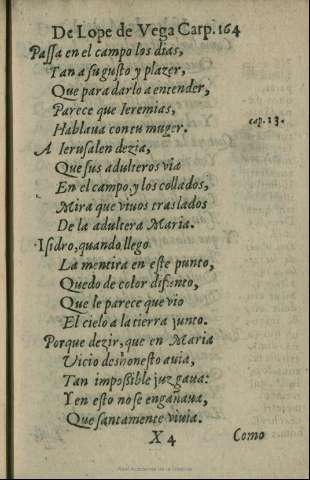 De Lope de Vega Carp. 164
Passa en el campo los dias,
Tan a su gusto y plazer,
Que para darlo a entender,
Parece que Ieremias,
cap. 13.
Hablaua con tu muger.
A Ierusalen dezia,
Que sus adulteros via
En el campo, y los collados,
Mira que viuos traslados
De la adultera Maria.
Isidro, quando llego
La mentira en este punto,
Quedo de color difunto,
Que le parece que vio
El cielo a la tierra junto.
Porque dezir, que en Maria
Vicio deshonesto auia,
Tan impossible juzgaua:
Y en esto no se engañaua,
Que santamente viuia.
X 4
Como